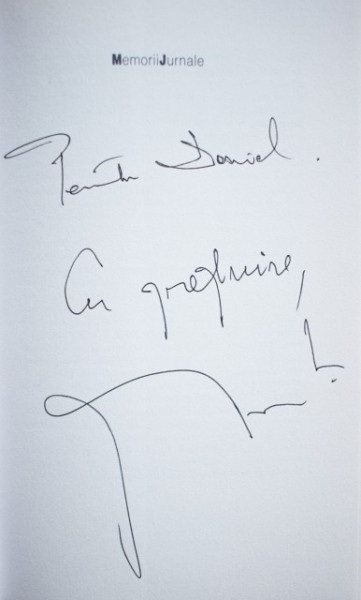 MemoriiJurnale
Pentru Daniel.
Cu prețuire,